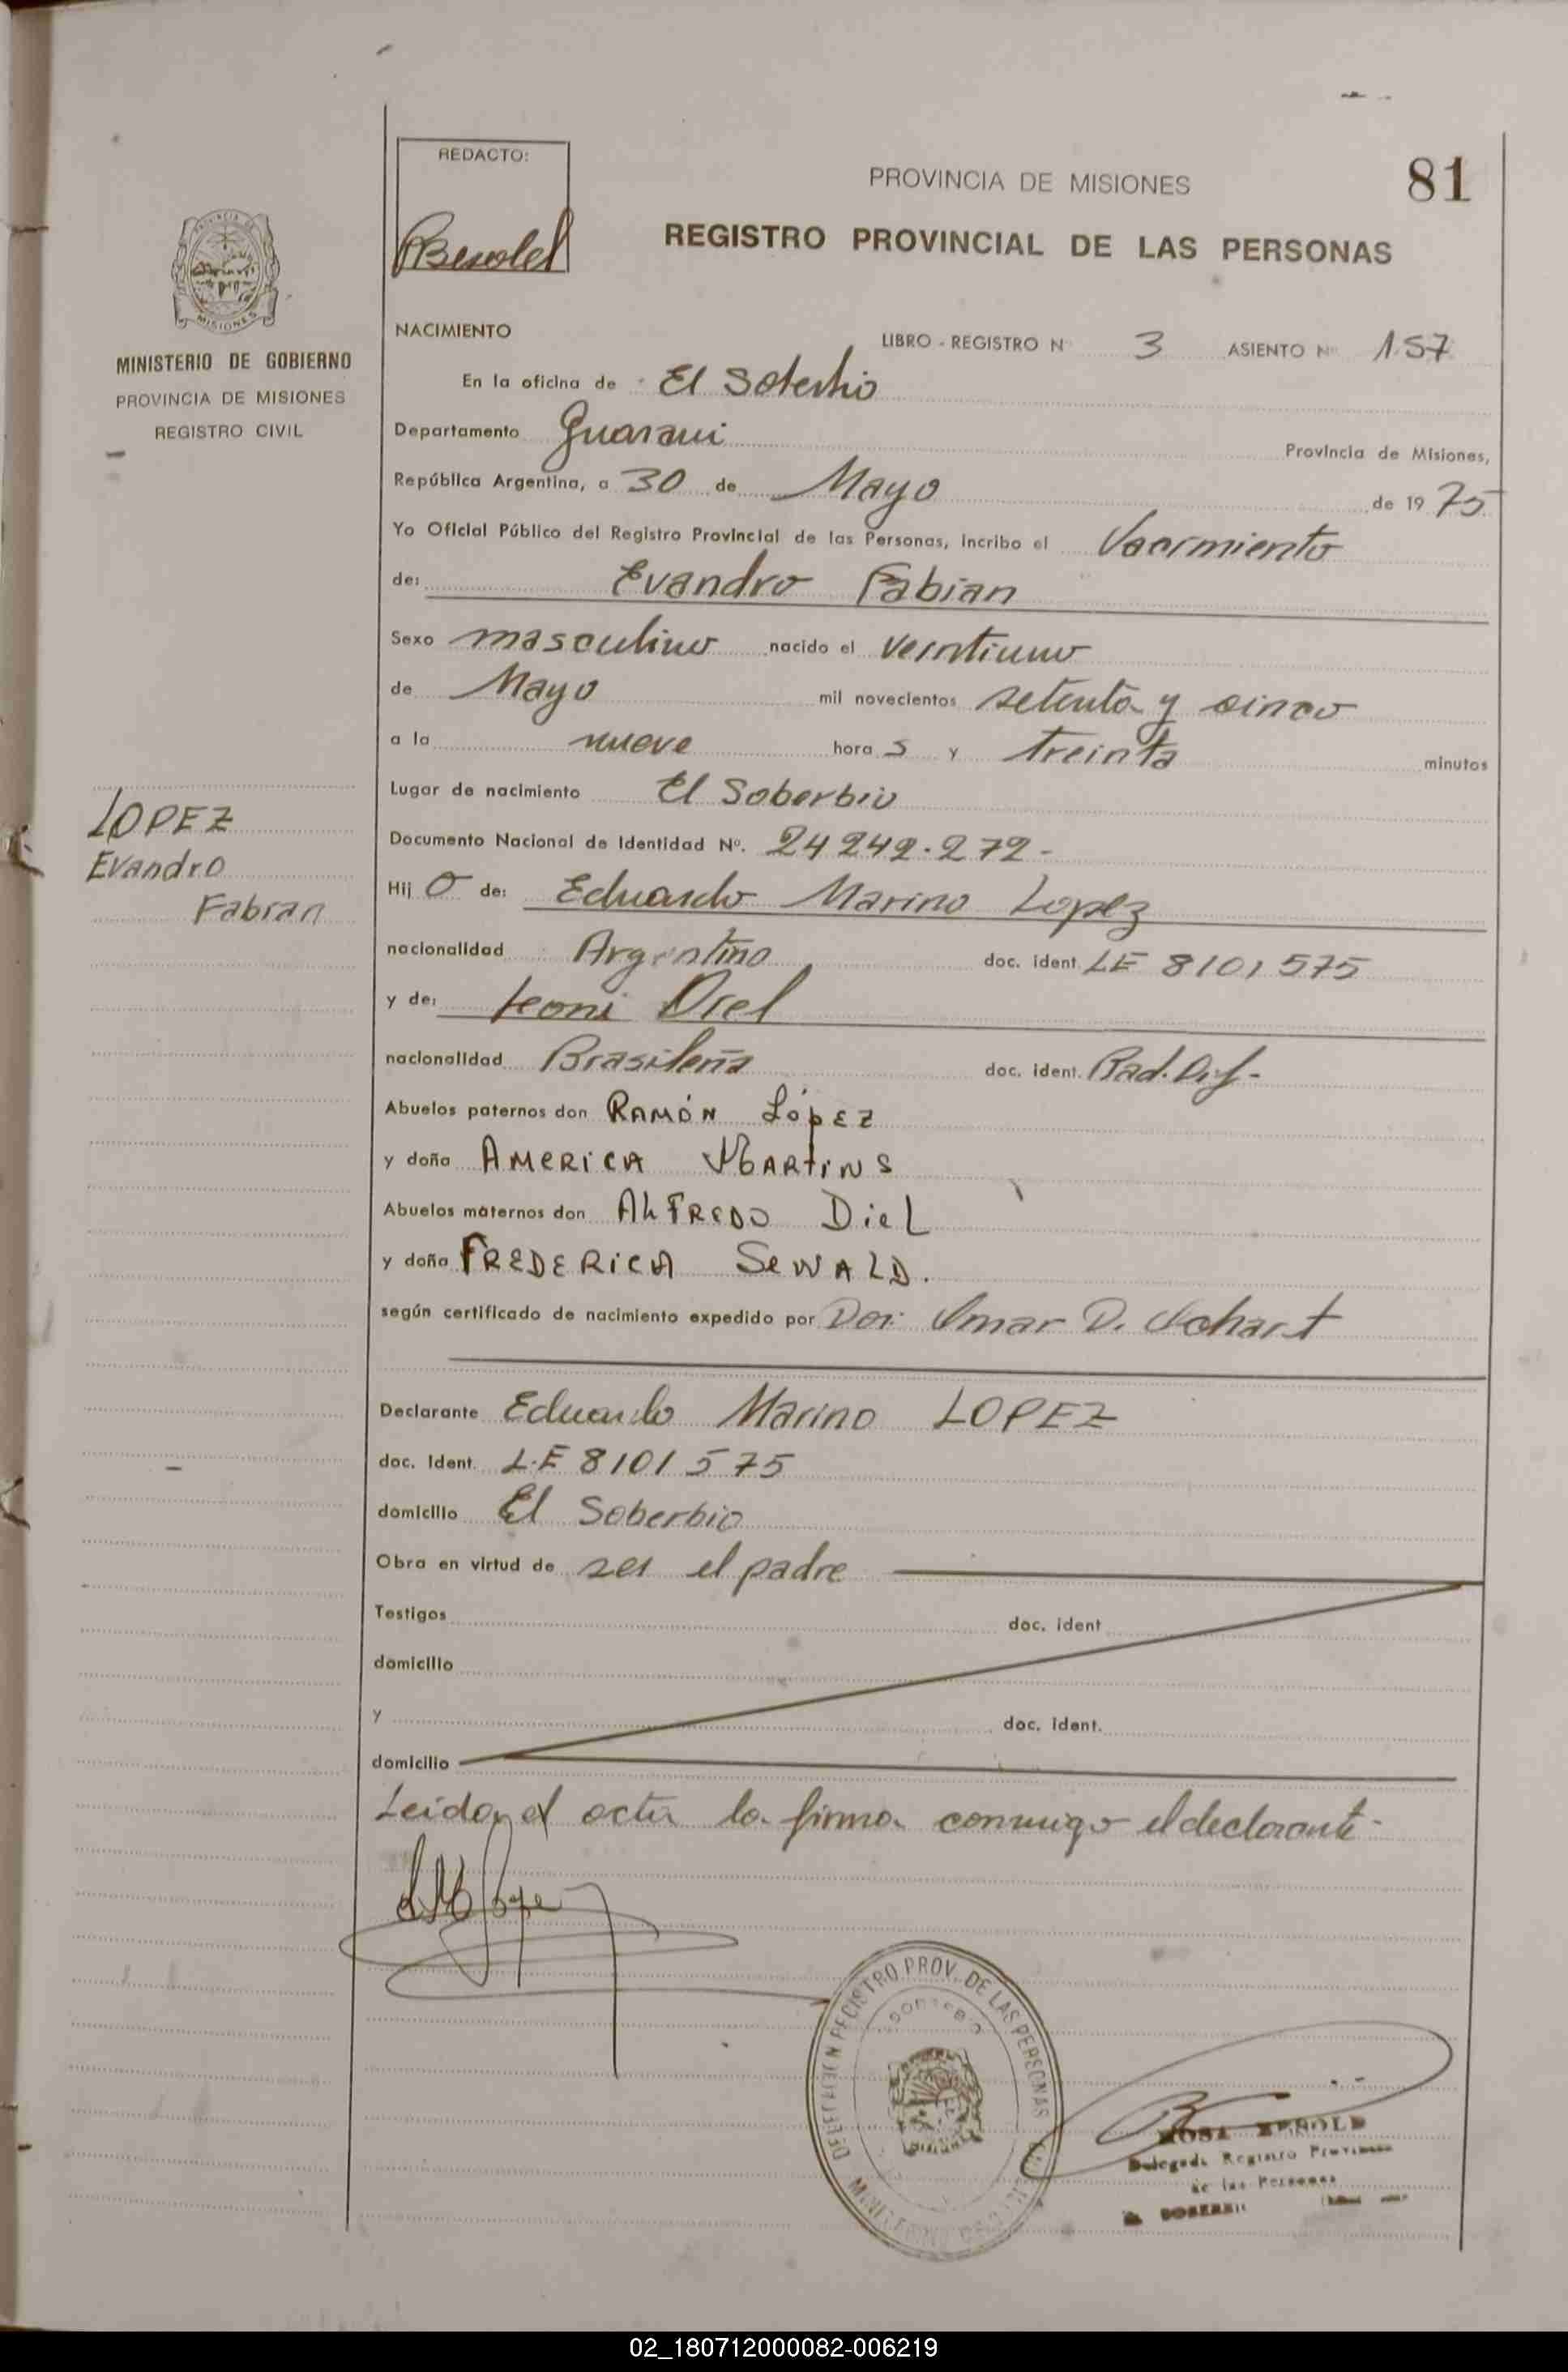 REDACTO:
PROVINCIA DE MISIONES
81
REGISTRO PROVINCIAL DE LAS PERSONAS
MISIONES
MINISTERIO DE GOBIERNO
PROVINCIA DE MISIONES
REGISTRO CIVIL
NACIMIENTO
LIBRO - REGISTRO Nº 3 ASIENTO Nº 157
En la oficina de El Soberbio
Departamento Guarani Provincia de Misiones,
República Argentina, a 30 de Mayo de 1975
Yo Oficial Público del Registro Provincial de las Personas, incribo el Nacimiento
de: Evandro Fabian
Sexo masculino nacido el veintiuno
de Mayo mil novecientos setenta y cinco
a la nueve hora s y treinta minutos
Lugar de nacimiento El Soberbio
LOPEZ
Evandro
Fabian
Documento Nacional de Identidad Nº. 24 242.272-
Hij o de: Eduardo Marino Lopez
nacionalidad Argentino doc. ident. LE 8101575
y de: Leoni Diel
nacionalidad Brasileña doc. ident. Rad. Def-
Abuelos paternos don RAMÓN López
y doña AMERICA MARTINS
Abuelos maternos don ALFREDO DieL
y doña FREDERICA SEWALD.
según certificado de nacimiento expedido por Omar D.
Declarante Eduardo Marino LOPEZ
doc. ident. L.E 8101575
domicilio El Soberbio
Obra en virtud de ser el padre
Testigos doc. ident
domicilio
y doc. ident.
domicilio
Leida el acta la firma conmigo el declarante-
REGISTRO PROV. DE LAS PERSONAS
ROSA
Registro
de las Personas
02_180712000082-006219